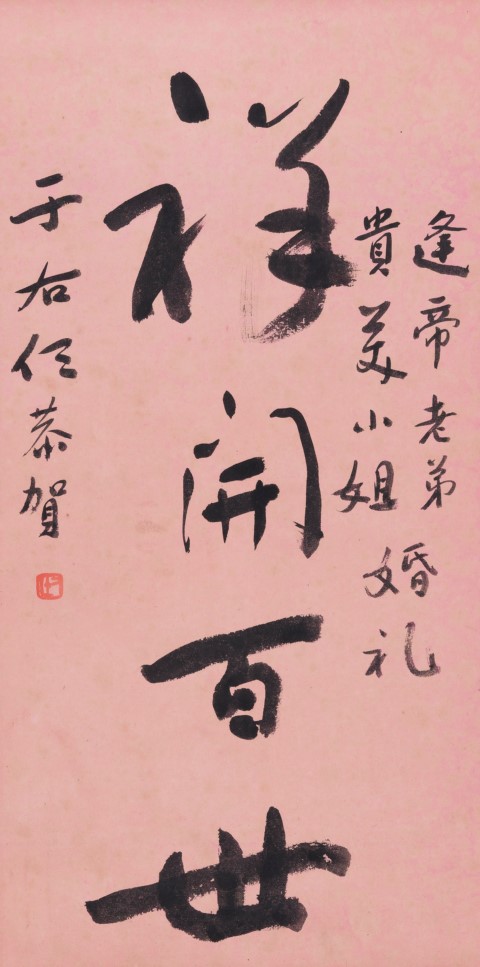 逢帝老弟
貴美小姐
婚礼
祥開百世
于右任恭賀